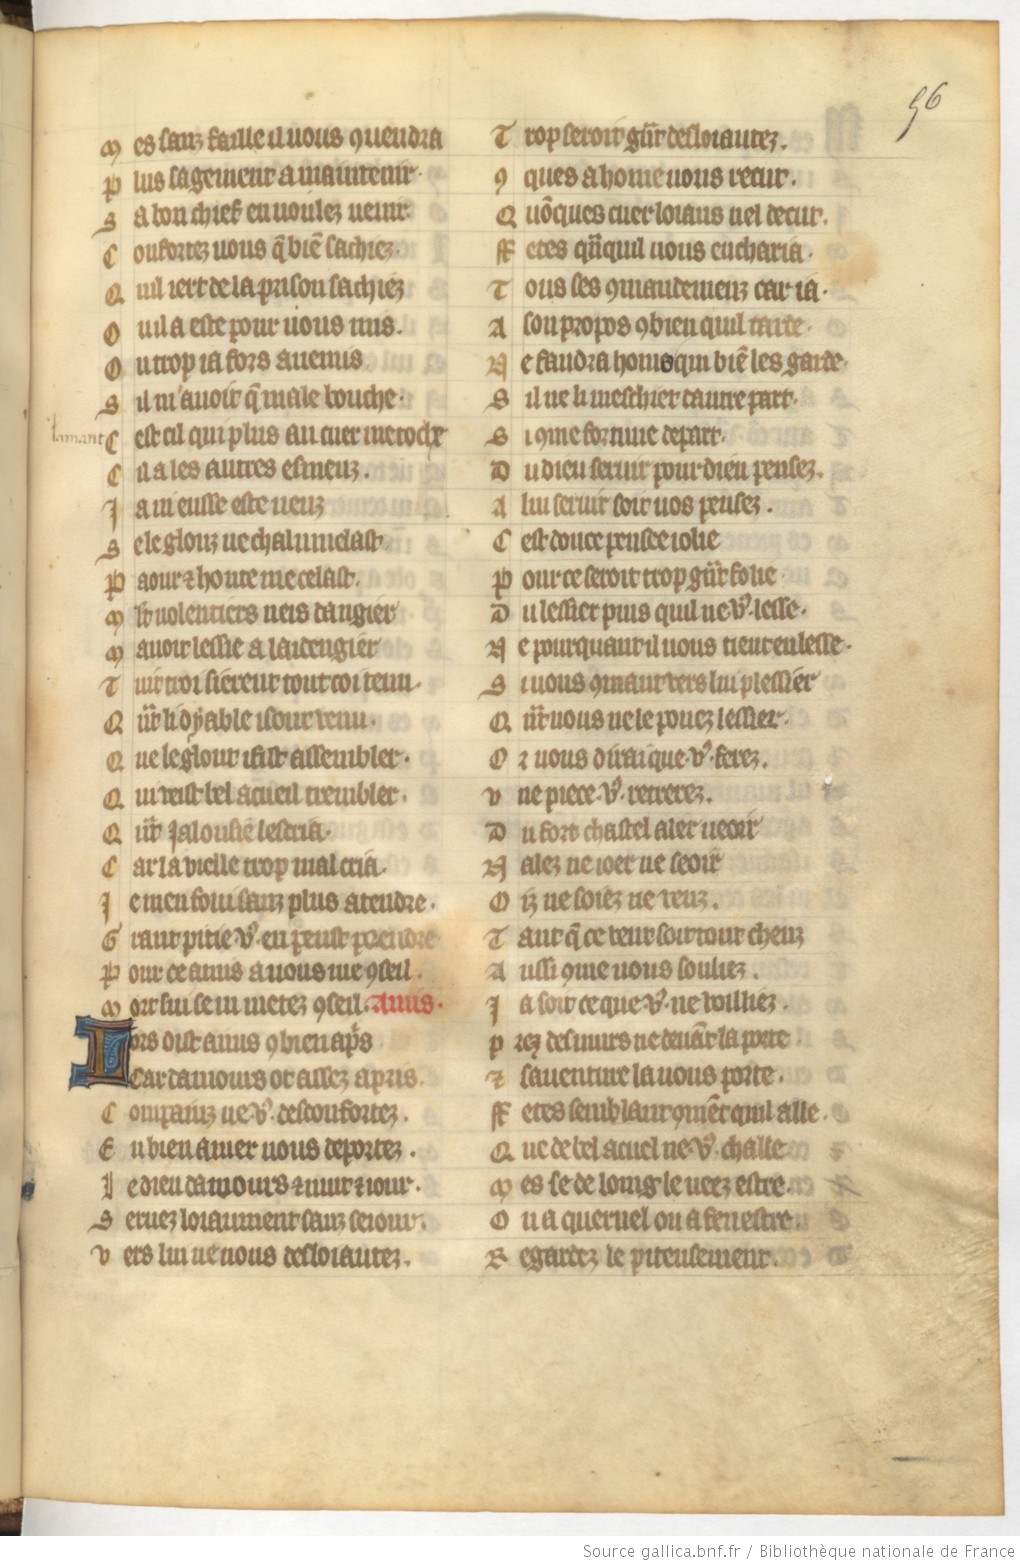 56
M es sanz faille il vous 9uendra
P lus sagement a maintenir
S a bon chief en voulez venir
C onfortez vous q̄ biē sachiez.
Q uil iert de la prison sachiez
O u il a este pour vous mis.
O u trop ia fors anemis
S il m'auoit q̄ male bouche.
lamant
C est cil qui plus au cuer me toche
C il a les autres esmeuz.
J a ni eusse este veuz
S e le glouz ne chalumelast
P aour ⁊ honte me celast.
M lt volentiers neis dangier
M auoit lessie a laidengier
T uit troi sierent tout coi tenu.
Q nt li dyable i sont venu.
Q ue le glout i fist assembler.
Q ui veist bel acueil trembler.
Q nt Jalousie lescria.
C ar la vielle trop mal cria.
J e men foui sanz plus atendre.
G rant pitie v9 en peust prendre
P our ce amis a vous me 9seil.
M ort sui se ni metez 9seil. Amis.
L ors dist amis 9 bien ap̄s
Car damours ot assez apris.
C ompainz ne v9 desconfortez.
E n bien amer vous deportez.
L e dieu damours ⁊ nuit ⁊ iour.
S eruez loiaument sanz seiour.
V ers lui ne vous desloiautez.
T rop seroit gr̄t desloiautez.
9 ques a home vous recut.
Q uōques cuer loiaus nel decut.
F etes qn̄quil vous encharia.
T ous ses 9mandemenz car ia.
A son propos 9bien quil tarde.
N e faudra homs qui biē les garde.
S il ne li meschiet dautre part.
S i 9me fortune depart.
D u dieu seruir pour dieu pensez.
A lui seruir soit vos pensez.
C est douce pensee iolie
P our ce seroit trop gr̄t folie
D u lessier puis quil ne v9 lesse.
N e pourquant il vous tient en lesse.
S i vous 9uant vers lui plessier
Q nt vous ne le pouez lessier.
O r vous dirai que v9 ferez.
V ne piece v9 retrerez.
D u fort chastel aler veoir
N alez ne ioer ne seoir
O iz ne soiez ne veuz.
T ant q̄ ce vent soit tout cheuz
A ussi 9me vous souliez.
J a soit ce que v9 ne voilliez.
P rez des murs ne deuāt la porte
⁊ sauenture la vous porte.
F etes semblant 9mēt quil alle.
Q ue de bel acuel ne v9 challe
M es se de loing le veez estre.
O u a queruel ou a fenestre.
R egardez le piteusement.
Source gallica.bnf.fr / Bibliothèque nationale de France